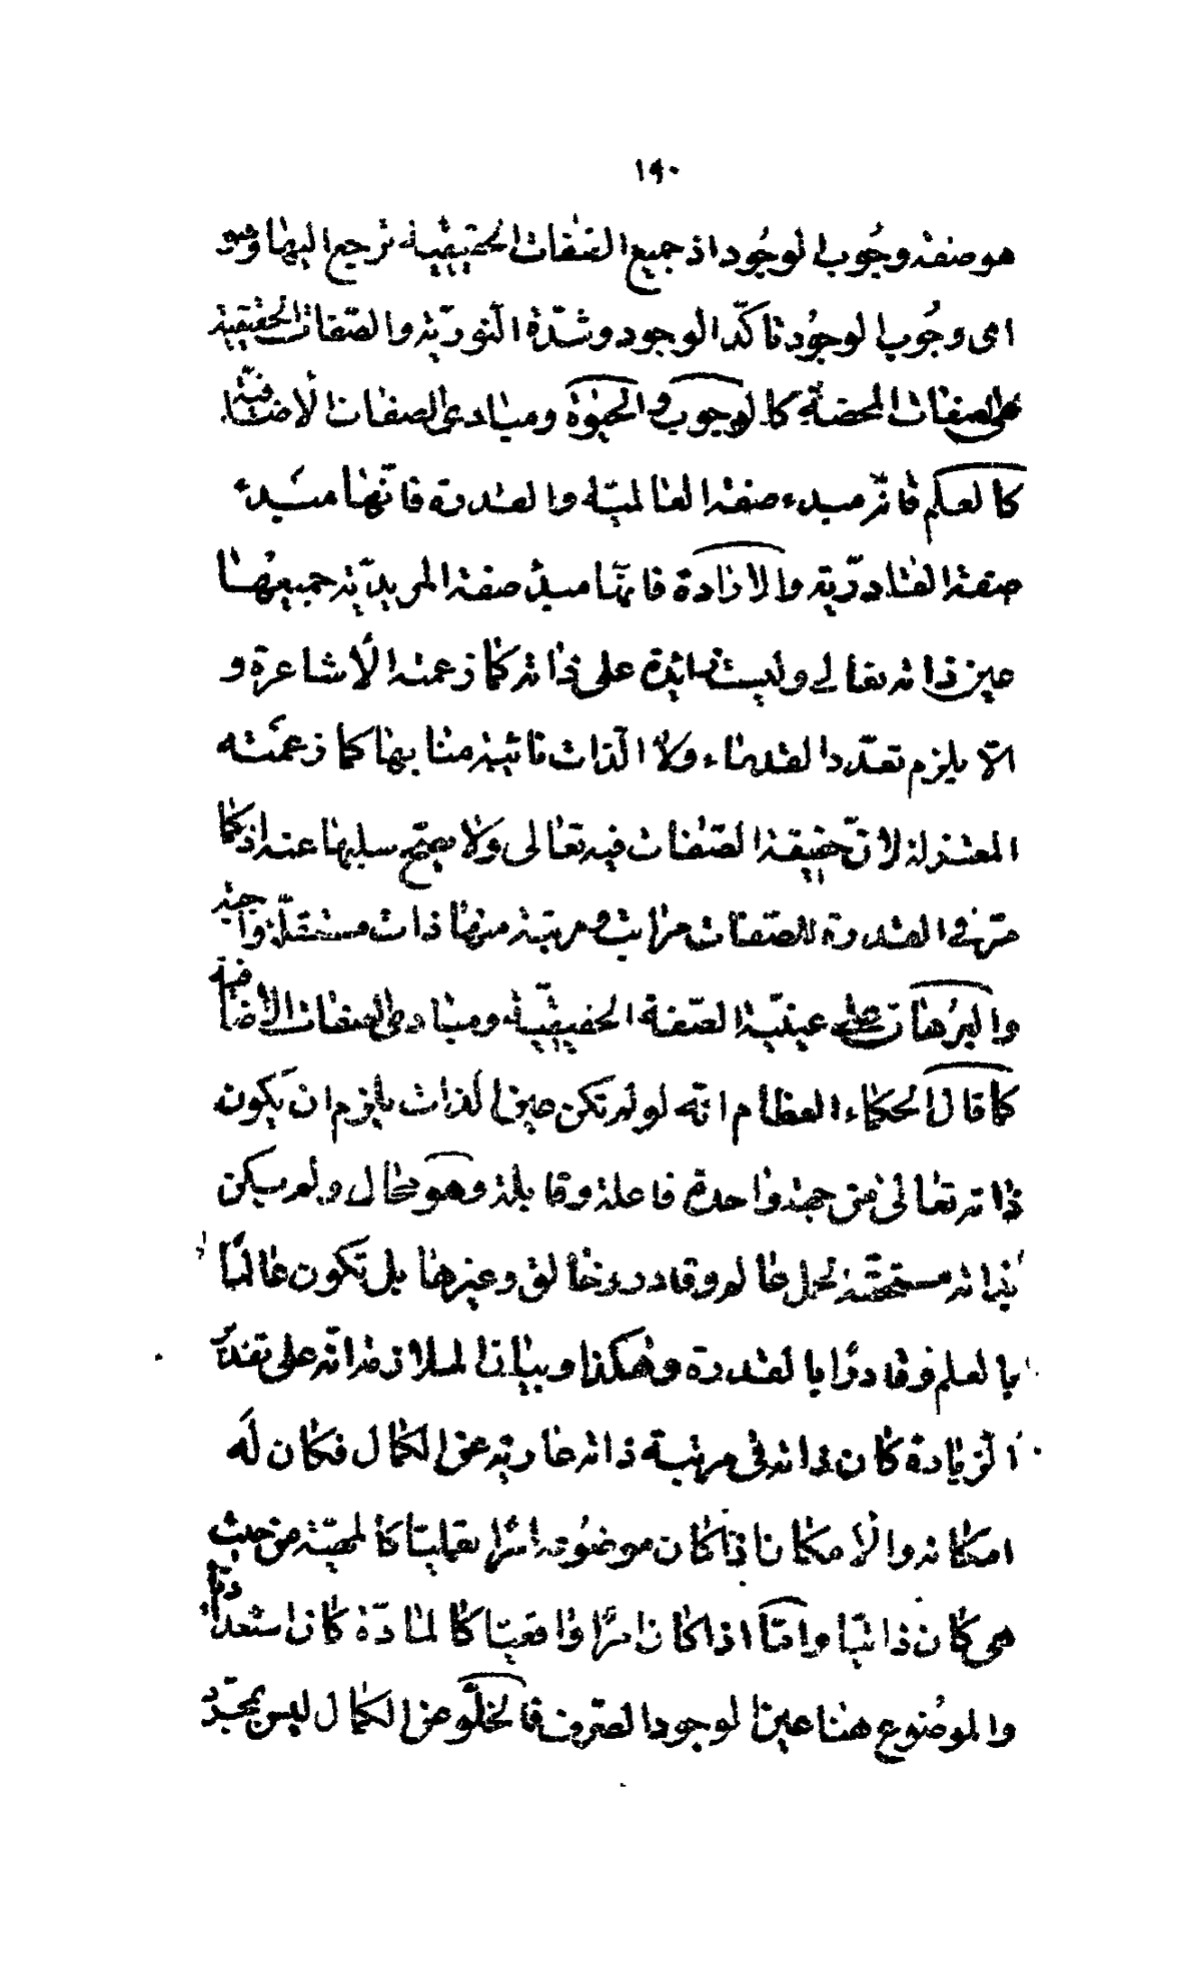 ١٩٠
هو صفة وجُوب الوجُود اذ جميع الصّفات الحقيقية ترجع اليها وهو
اى وجُوب الوجُود تاكّد الوجود وشدّة النّوريّة والصّفات الحقيقية
هى الصفات المحضة كالوجوب والحيٰوة ومبادى الصفات الاضافيّة
كالعلم فانّه مبدء صفة العالميّة والقدرة فانّها مبدء
صفة القادريّة والارادة فانّها مبدء صفة المريديّة جميعها
عين ذاته تعالى وليست زائدة على ذاته كما زعمته الاشاعرة و
الّا يلزم تعدّد القدماء ولا الذّات نائبة منابها كما زعمته
المعتزلة لانّ حقيقة الصّفات فيه تعالى ولا يصحّ سلبها عنه اذ كما
مرّ فى القدرة للصّفات مراتب ومرتبة منها ذات مستقلّة واجبة
والبرهان على عينيّة الصّفة الحقيقيّة ومبادى الصفات الاضافية
كما قال الحكماء العظام انّه لو لم تكن عين الذات يلزم ان يكون
ذاته تعالى من جهة واحدة فاعلة وقابلة وهو محال ولم يكن
بذاته مستحقّة لحمل عالم وقادر وخالق وغيرها بل تكون عالمًا
بالعلم وقادرًا بالقدرة وهكذا وبيان الملازمة انّه على تقدير
الزيادة كان ذاته فى مرتبة ذاته عارية عن الكمال فكان له
امكانه والامكان اذا كان موضوعه امرًا تعمليّا كالمهيّة من حيث
هى كان ذاتيّا وامّا اذا كان امرًا واقعيّا كالمادّة كان استعداديّا
والموضوع هنا عين الوجود الصّرف فالخلّو عن الكمال ليس بمجرّد